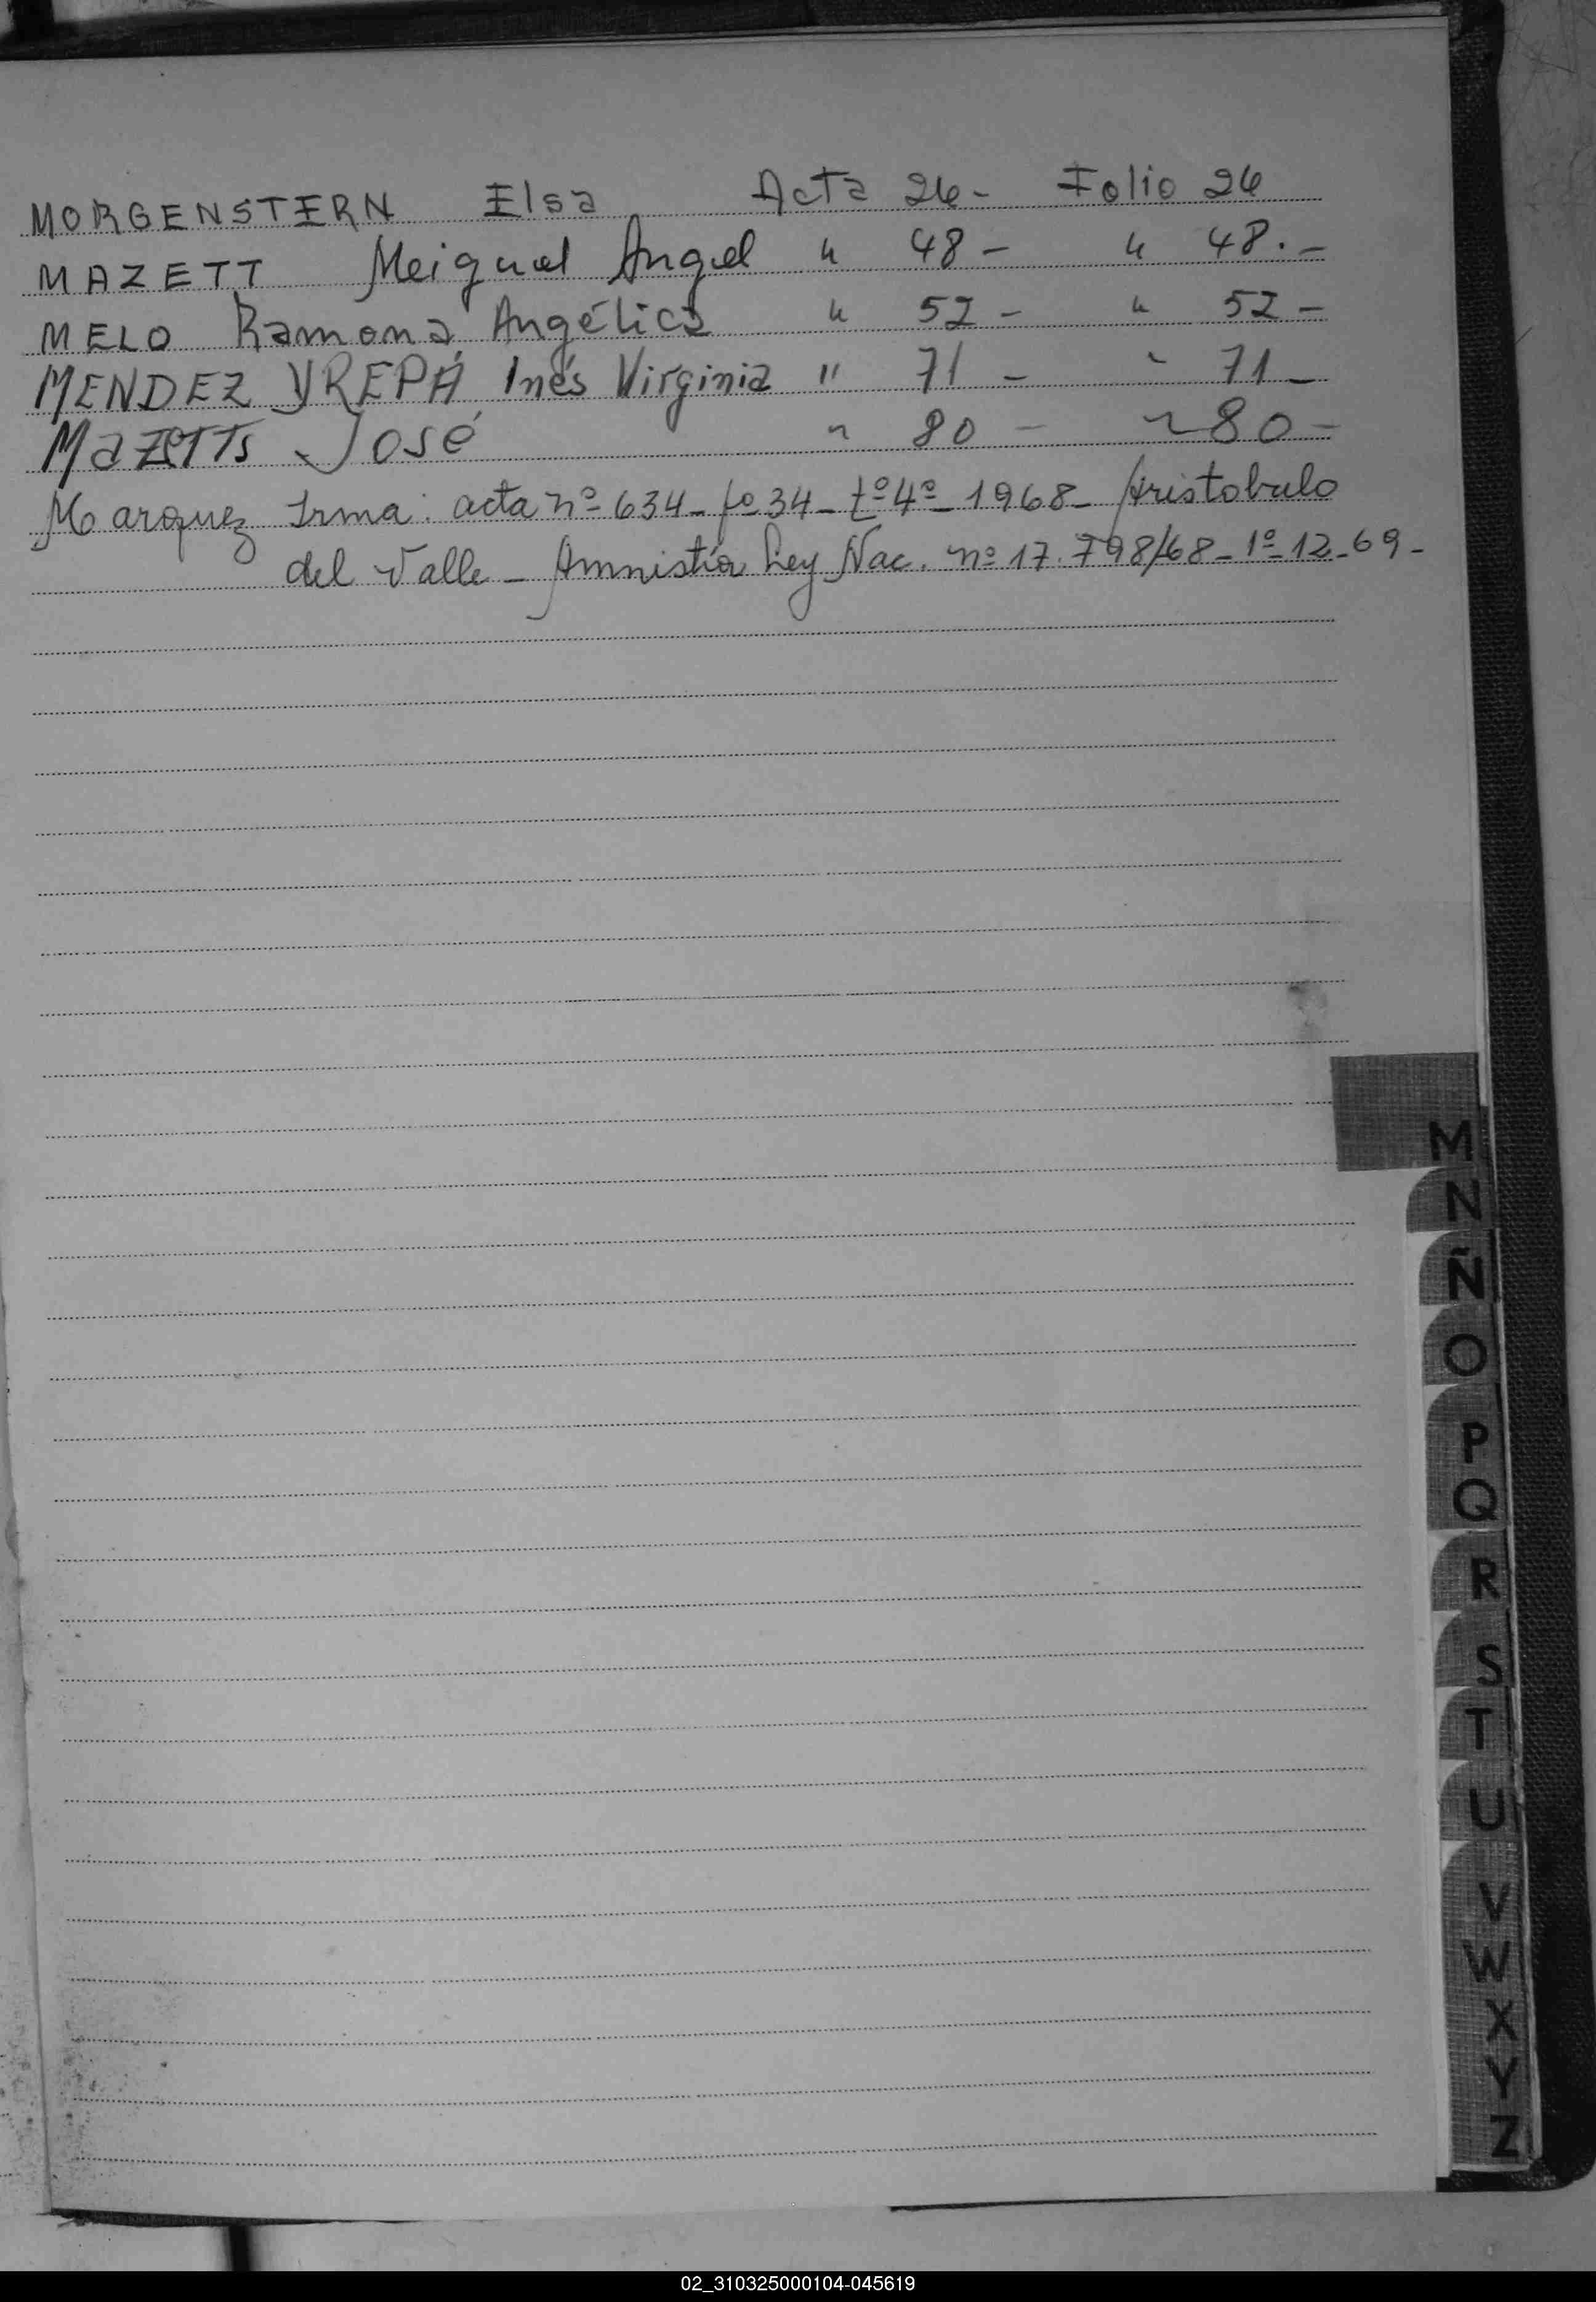 MORGENSTERN Elsa Acta 26- Folio 26
MAZETT Meiguel Angel " 48- " 48.-
MELO Ramona Angélica " 52- " 52-
MENDEZ YREPÁ, Inés Virginia " 71- " 71-
MaZETTs José " 80- " 80-
Marquez Irma: acta nº 634- fº 34- tº 4º- 1968- Aristobulo
del Valle- Amnistía Ley Nac. nº 17.798/68- 1º-12-69-
M
N
Ñ
O
P
Q
R
S
T
U
V
W
X
Y
Z
02_310325000104-045619